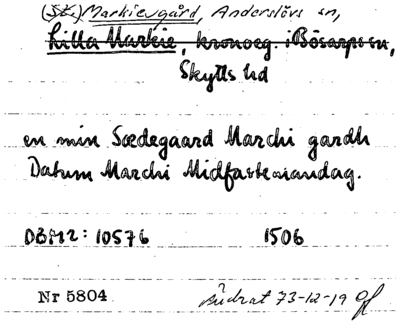 (St.) Markiesgård, Anderslövs sn,
Lilla Markie, kronoeg. i Bösarps sn,
Skytts hd
en min Sædegaard Marchi gardh
Datum Marchi Midfastemandag.
DBM2: 10576 1506
Nr 5804 Ändrat 73-12-19